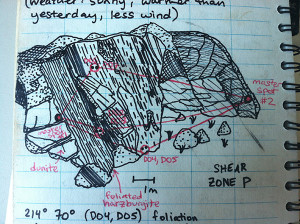 (weather: sunny, warmer than
yesterday, less wind)
master
spot
#2
dunite
D04, D05
foliated
harzburgite
1m
SHEAR
ZONE P
214° 70° (D04, D05) foliation